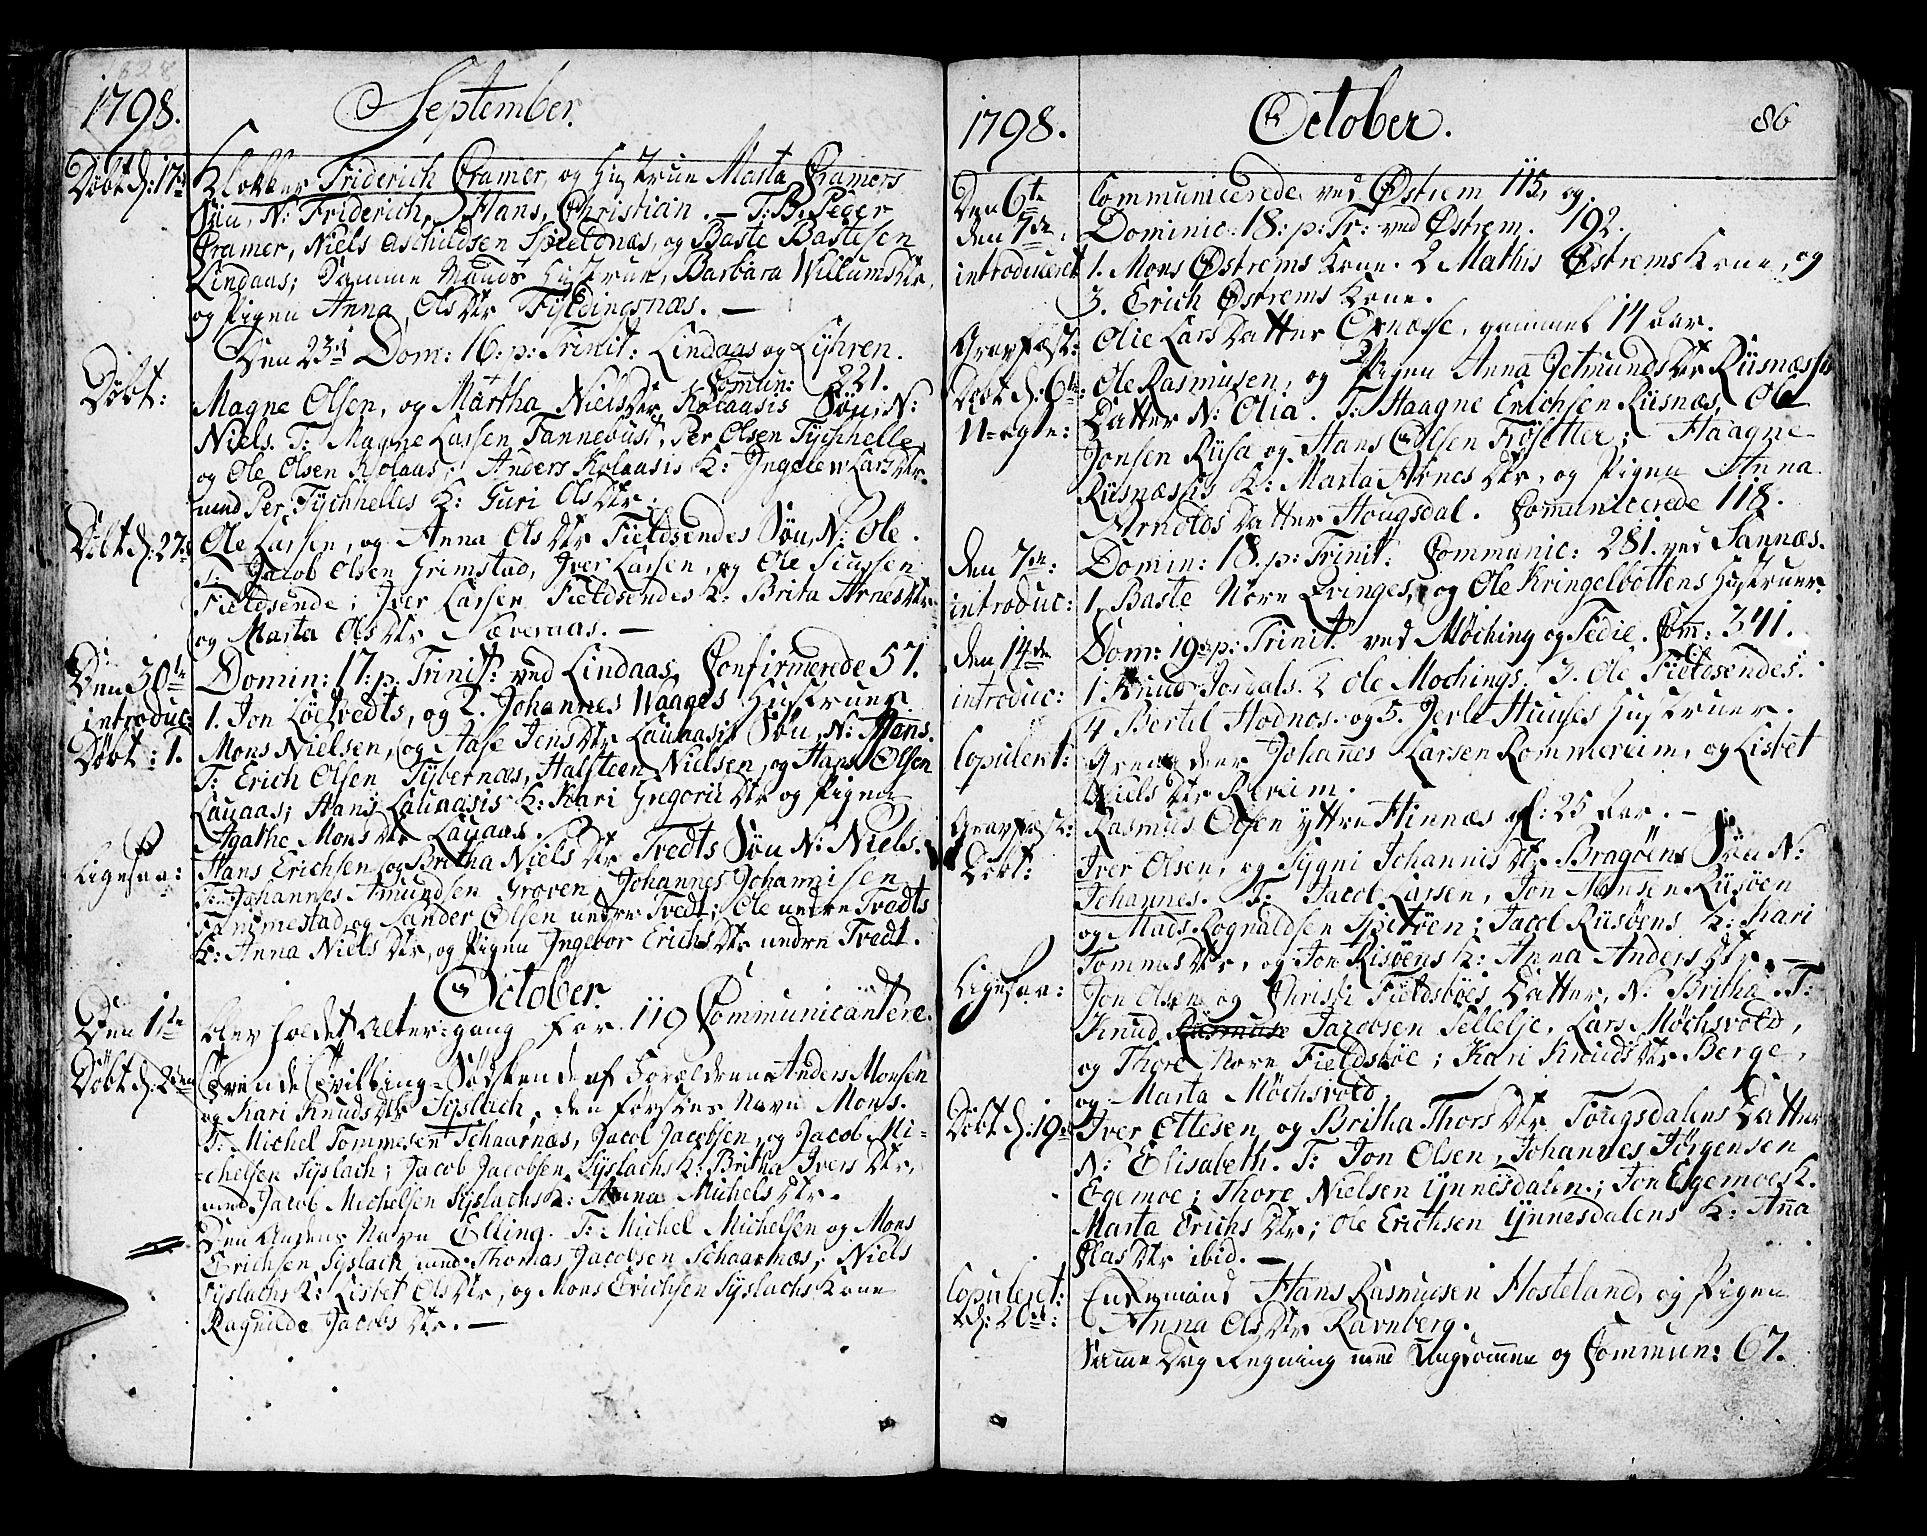 1798.
September.
Døbt d: 17de
Klokker Friderich Cramer, og Hustrue Marta Cramers
Søn, N: Friderich, Hans, Christian. — T: B. Peger
Cramer, Niels Aschildsen Spieldnæs, og Baste Bastesen
Lindaas; Samme Mands Hustrue, Barbara Willumsdtr,
og Pigen Anna Olsdtr Fyldingsnæs. —
Den 23de Dom: 16. p: Trinit: Lindaas og Lyhren.
Comun: 221.
Døbt:
Magne Olsen, og Martha Nielsdtr Kolaasis Søn, N:
Niels. T: Magne Larsen Fannebust, Per Olsen Tychhelle,
og Ole Olsen Kolaas; Anders Kolaasis K: Ingelew Larsdtr.
med Per Tychhelles K: Guri Olsdtr.
Døbt d: 27de
Ole Larsen, og Anna Olsdtr Fieldsendes Søn, N: Ole.
T: Jacob Olsen Grimstad, Iver Larsen, og Ole
Fieldsende; Iver Larsen Fieldsendes K: Brita Arnesdtr
og Marta Olsdtr Næveraas. —
Den 30te
Domin: 17: p: Trinit: ved Lindaas, Confirmerede 57.
introduc:
1. Jon Löetvedts, og 2. Johannes Waages Hustruer.
Døbt: 1.
Mons Nielsen, og Aase Jensdtr Lauaasis Søn, N: Hans.
T: Erich Olsen Tybernæs, Halsteen Nielsen, og Hans Olsen
Lauaas; Hans Lauaasis K: Kari Gregoriidtr og Pigen
Agathe Monsdtr Lauaas.
Ligesaa:
Hans Erichsen, og Britha Nielsdtr Tvedts Søn N: Niels.
T: Johannes Amundsen Groven, Johannes Johannisen
Fammestad, og Sander Olsen nedre Tvedt; Ole nedre Tvedts
K: Anna Nielsdtr, og Pigen Ingebor Erichsdtr nedre Tvedt.
October.
Den 1ste
blev holdet Altergang for 119 Communicantere.
Døbt d: 2den
Tvende Tvilling-Sødskende af Forældrene Anders Monsen
og Kari Knudsdtr Syslach, den førstes Navn Mons.
T: Michel Tommesen Schaarnæs, Jacob Jacobsen, og Jacob Mi-
chelsen Syslach; Jacob Jacobsen Syslachs K: Britha Iversdtr,
med Jacob Michelsen Syslachs K: Anna Michelsdtr.
Den Andens Navn Elling. T: Michel Michelsen og Mons
Erichsen Syslach med Thomas Jacobsen Schaarnæs; Niels
Syslachs K: Lisbet Olsdtr, og Mons Erichsen Syslachs Kone
Ragnilde Jacobsdtr. —
1798.
October.
86
Den 6te
Communicerede ved Østrem 115, og
den 7de,
Dominic: 18: p: Tr: ved Østrem. 192.
introduceret
1. Mons Østrems Kone. 2 Mathis Østrems Kone, og
3. Erich Østrems Kone.
Gravfæst:
Olie Larsdatter Exnæsse, gammel 14 Aar.
Døbt d: 6te:
Ole Rasmusen, og Pigen Anna Jetmundsdtr Riisnæsses
U-ægte:
Datter N: Olia. T: Haagne Erichsen Riisnæs, Ole
Jonsen Riisa og Hans Olsen Kösetter; Haagne
Riisnæsis K: Marta Arnesdtr, og Pigen Anna
Arnoldsdatter Hougsdal. Communicerede 118.
den 7de:
Domin: 18. p: Trinit: Communic: 281. ved Sannæs.
introduc:
1. Baste Nore Evinges, og Ole Kringelbottens Hustruer.
den 14de
Dom: 19de p: Trinit: ved Møching og Fedie. Com: 341.
introduc:
1 Knud Jordals. 2 Ole Mochings. 3. Ole Fieldsendes.
4 Bertel Hodnes. og 5. Jerle Huuses Hustruer.
Copuleret:
Johanes Larsen Rommereim, og Lisbet
Nielsdtr Rereim.
Gravfæst:
Rasmus Olsen yttre Hinnæs gl: 25 Aar. —
Døbt:
Iver Olsen, og Sygni Johannisdtr Bragøens Søn N:
Johannes. T: Jacob Larsen, Jon Monsen Riisöen
og Mads Rognaldsen Spitöen; Jacob Riisöens K: Kari
Tommasdtr, og Jon Risöens K: Anna Andersdtr. —
Ligesaa:
Jon Olsen og Christi Fieldsböes Datter, N: Britha. T:
Knud Rasmuse Jacobsen Sellelje, Lars Møchsvold,
og Thore Nore Fieldsböe; Kari Knudsdtr Berge,
og Marta Møchsvold.
Døbt d: 19de
Iver Ottesen og Britha Thorsdtr Tougsdalens Datter
N: Elisabeth. T: Jon Olsen, Johannes Jørgensen
Egemoe; Thore Nielsen Ynnesdalen.; Jon Egemoes K.
Marta Erichsdtr; Ole Erichsen Ynnesdalens K: Anna
Olasdtr ibid. —
Copuleret:
d: 20de:
Enkemand Hans Rasmusen Hosteland, og Pigen
Anna Olsdtr Ravnberg.
Samme Dag Regning med Ungdommen og Commun: 67.